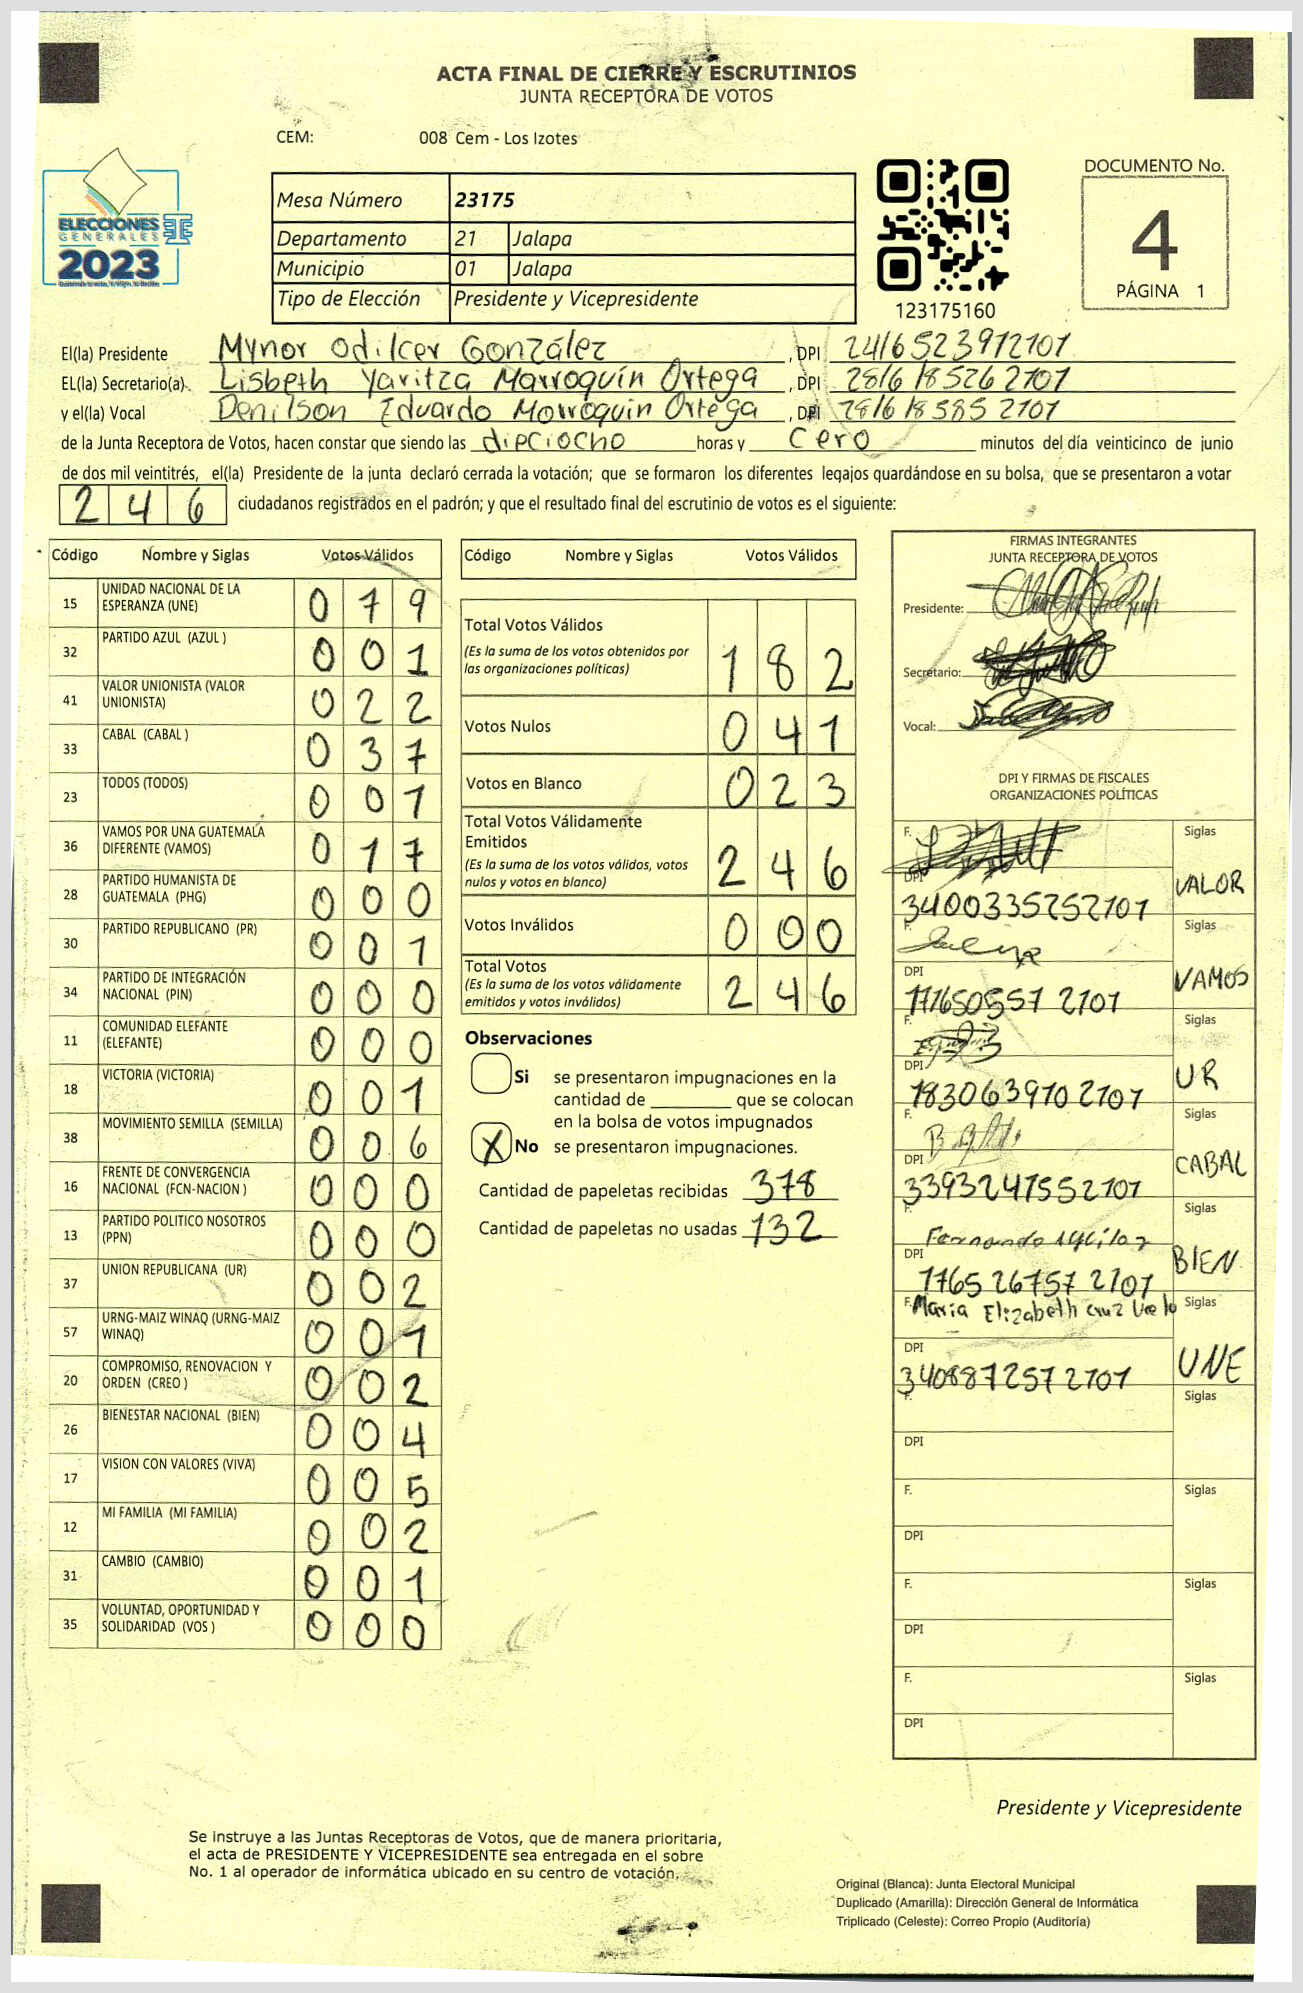 ACTA FINAL DE CIERRE Y ESCRUTINIOS
JUNTA RECEPTORA DE VOTOS
CEM: 008 Cem - Los Izotes
ELECCIONES
GENERALES
2023
Mesa Número 23175
Departamento 21 Jalapa
Municipio 01 Jalapa
Tipo de Elección Presidente y Vicepresidente
123175160
DOCUMENTO No.
4
PÁGINA 1
El(la) Presidente Mynor Odilcer González, DPI 2416523912101
EL(la) Secretario(a) Lisbeth Yaritza Marroquín Ortega, DPI 2816185262101
y el(la) Vocal Denilson Eduardo Marroquin Ortega, DPI 2816185852101
de la Junta Receptora de Votos, hacen constar que siendo las dieciocho horas y cero minutos del día veinticinco de junio
de dos mil veintitrés, el(la) Presidente de la junta declaró cerrada la votación; que se formaron los diferentes legajos guardándose en su bolsa, que se presentaron a votar
246 ciudadanos registrados en el padrón; y que el resultado final del escrutinio de votos es el siguiente:
Código Nombre y Siglas Votos Válidos
15 UNIDAD NACIONAL DE LA ESPERANZA (UNE) 079
32 PARTIDO AZUL (AZUL ) 001
41 VALOR UNIONISTA (VALOR UNIONISTA) 022
33 CABAL (CABAL ) 037
23 TODOS (TODOS) 001
36 VAMOS POR UNA GUATEMALA DIFERENTE (VAMOS) 017
28 PARTIDO HUMANISTA DE GUATEMALA (PHG) 000
30 PARTIDO REPUBLICANO (PR) 001
34 PARTIDO DE INTEGRACIÓN NACIONAL (PIN) 000
11 COMUNIDAD ELEFANTE (ELEFANTE) 000
18 VICTORIA (VICTORIA) 001
38 MOVIMIENTO SEMILLA (SEMILLA) 006
16 FRENTE DE CONVERGENCIA NACIONAL (FCN-NACION ) 000
13 PARTIDO POLITICO NOSOTROS (PPN) 000
37 UNION REPUBLICANA (UR) 002
57 URNG-MAIZ WINAQ (URNG-MAIZ WINAQ) 001
20 COMPROMISO, RENOVACION Y ORDEN (CREO ) 002
26 BIENESTAR NACIONAL (BIEN) 004
17 VISION CON VALORES (VIVA) 005
12 MI FAMILIA (MI FAMILIA) 002
31 CAMBIO (CAMBIO) 001
35 VOLUNTAD, OPORTUNIDAD Y SOLIDARIDAD (VOS ) 000
Código Nombre y Siglas Votos Válidos
Total Votos Válidos
(Es la suma de los votos obtenidos por
las organizaciones políticas) 182
Votos Nulos 041
Votos en Blanco 023
Total Votos Válidamente
Emitidos
(Es la suma de los votos válidos, votos
nulos y votos en blanco) 246
Votos Inválidos 000
Total Votos
(Es la suma de los votos válidamente
emitidos y votos inválidos) 246
Observaciones
Si se presentaron impugnaciones en la
cantidad de ________ que se colocan
en la bolsa de votos impugnados
X No se presentaron impugnaciones.
Cantidad de papeletas recibidas 378
Cantidad de papeletas no usadas 132
FIRMAS INTEGRANTES
JUNTA RECEPTORA DE VOTOS
Presidente:
Secretario:
Vocal:
DPI Y FIRMAS DE FISCALES
ORGANIZACIONES POLÍTICAS
F. Siglas
DPI 3400335252101 VALOR
F. Siglas
DPI 1716505572101 VAMOS
F. Siglas
DPI 1830639102101 UR
F. Siglas
DPI 3393247552101 CABAL
F. Fernando Siglas
DPI 1765267572101 BIEN
F. Maria Elizabeth Cruz Siglas
DPI 3408872572101 UNE
F. Siglas
DPI
F. Siglas
DPI
F. Siglas
DPI
F. Siglas
DPI
Presidente y Vicepresidente
Se instruye a las Juntas Receptoras de Votos, que de manera prioritaria,
el acta de PRESIDENTE Y VICEPRESIDENTE sea entregada en el sobre
No. 1 al operador de informática ubicado en su centro de votación.
Original (Blanca): Junta Electoral Municipal
Duplicado (Amarilla): Dirección General de Informática
Triplicado (Celeste): Correo Propio (Auditoría)